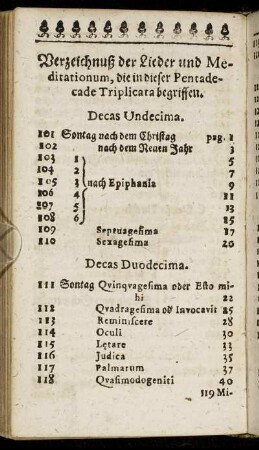 Verzeichnuß der Lieder und Me-
ditationum, die in dieser Pentade-
cade Triplicata begriffen.
Decas Undecima.
101 Sontag nach dem Christag pag. 1
102 nach dem Neuen Jahr 3
103 1 5
104 2 7
105 3 nach Epiphania 9
106 4 11
107 5 13
108 6 15
109 Septuagesima 17
110 Sexagesima 20
Decas Duodecima.
111 Sontag Qvinqvagesima oder Esto mi-
hi 22
112 Qvadragesima od Invocavit 25
113 Reminiscere 28
114 Oculi 30
115 Lętare 33
116 Judica 35
117 Palmarum 37
118 Qvasimodogeniti 40
119 Mi-